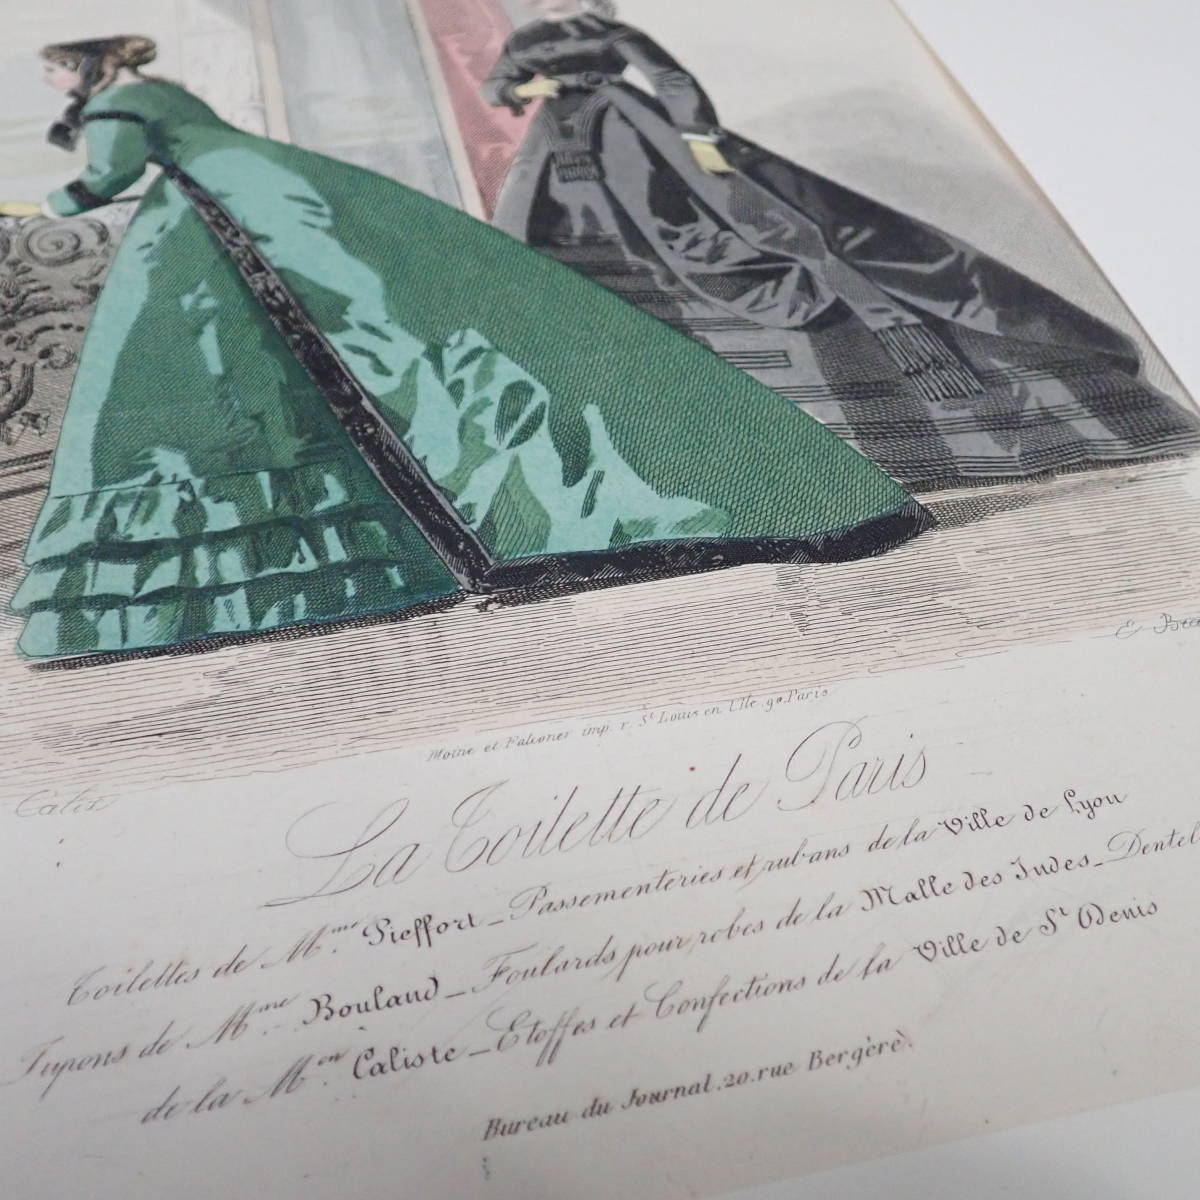 Calix
E
Moine et Falconer imp. r. St Louis en l'Ile. 90. Paris
La Toilette de Paris
Toilettes de Mme Pieffort _ Passementeries et rubans de la Ville de Lyon
Jupons de Mme Bouland _ Foulards pour robes de la Malle des Indes _ Dentel
de la Mon Caliste _ Etoffes et Confections de la Ville de St Denis
Bureau du Journal. 20. rue Bergère.